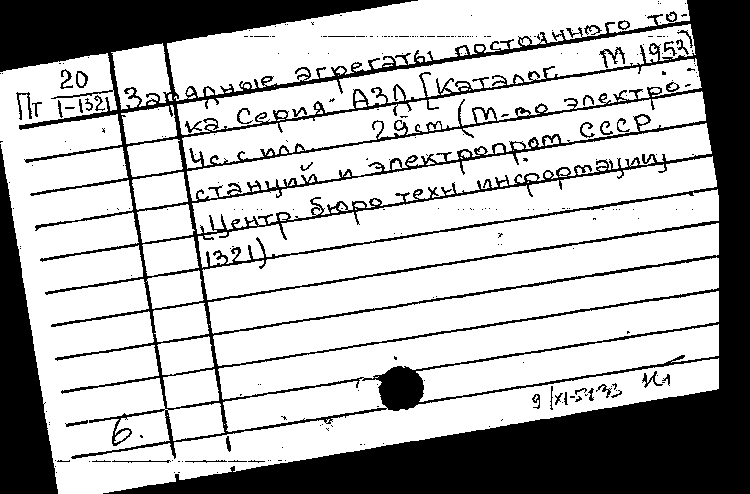 Пг 20
1-1321
Зарядные агрегаты постоянного то-
ка. Серия АЗД. [Каталог. М., 1953]
4с. с илл. 29см. (М-во электро-
станций и электропром. СССР.
Центр. бюро техн. информации
1321).
6.